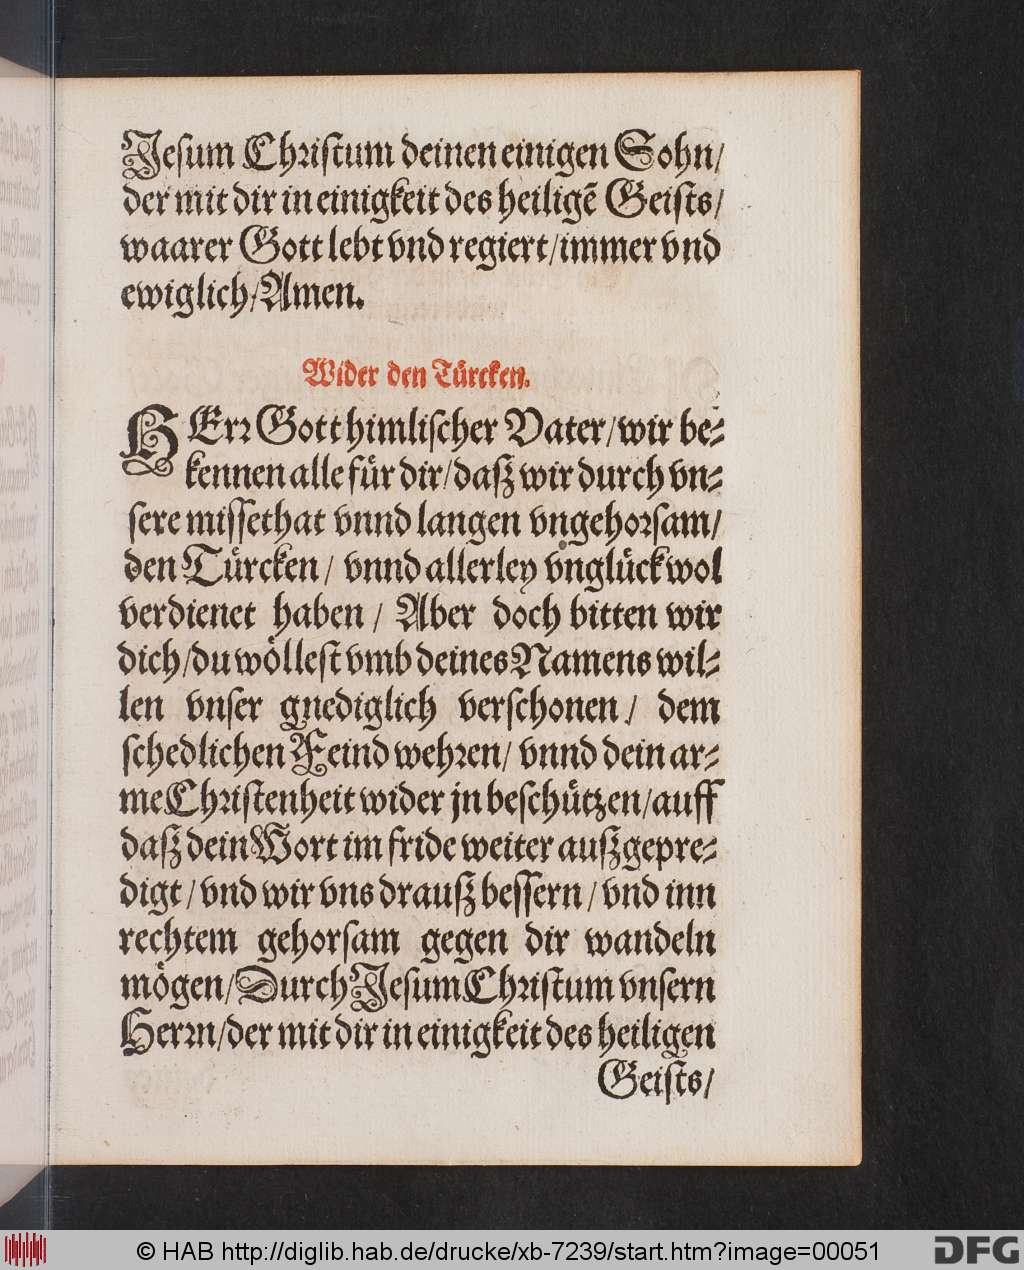 Jesum Christum deinen einigen Sohn/
der mit dir in einigkeit des heiligẽ Geists/
waarer Gott lebt vnd regiert/immer vnd
ewiglich/Amen.
Wider den Türcken.
HErr Gott himlischer Vater/wir be-
kennen alle für dir/daß wir durch vn-
sere missethat vnnd langen vngehorsam/
den Türcken/ vnnd allerley vnglück wol
verdienet haben/ Aber doch bitten wir
dich/du wöllest vmb deines Namens wil-
len vnser gnediglich verschonen/ dem
schedlichen Feind wehren/ vnnd dein ar-
me Christenheit wider jn beschützen/auff
daß dein Wort im fride weiter außgepre-
digt/ vnd wir vns drauß bessern/ vnd inn
rechtem gehorsam gegen dir wandeln
mögen/Durch Jesum Christum vnsern
Herrn/der mit dir in einigkeit des heiligen
Geists/
© HAB http://diglib.hab.de/drucke/xb-7239/start.htm?image=00051
DFG